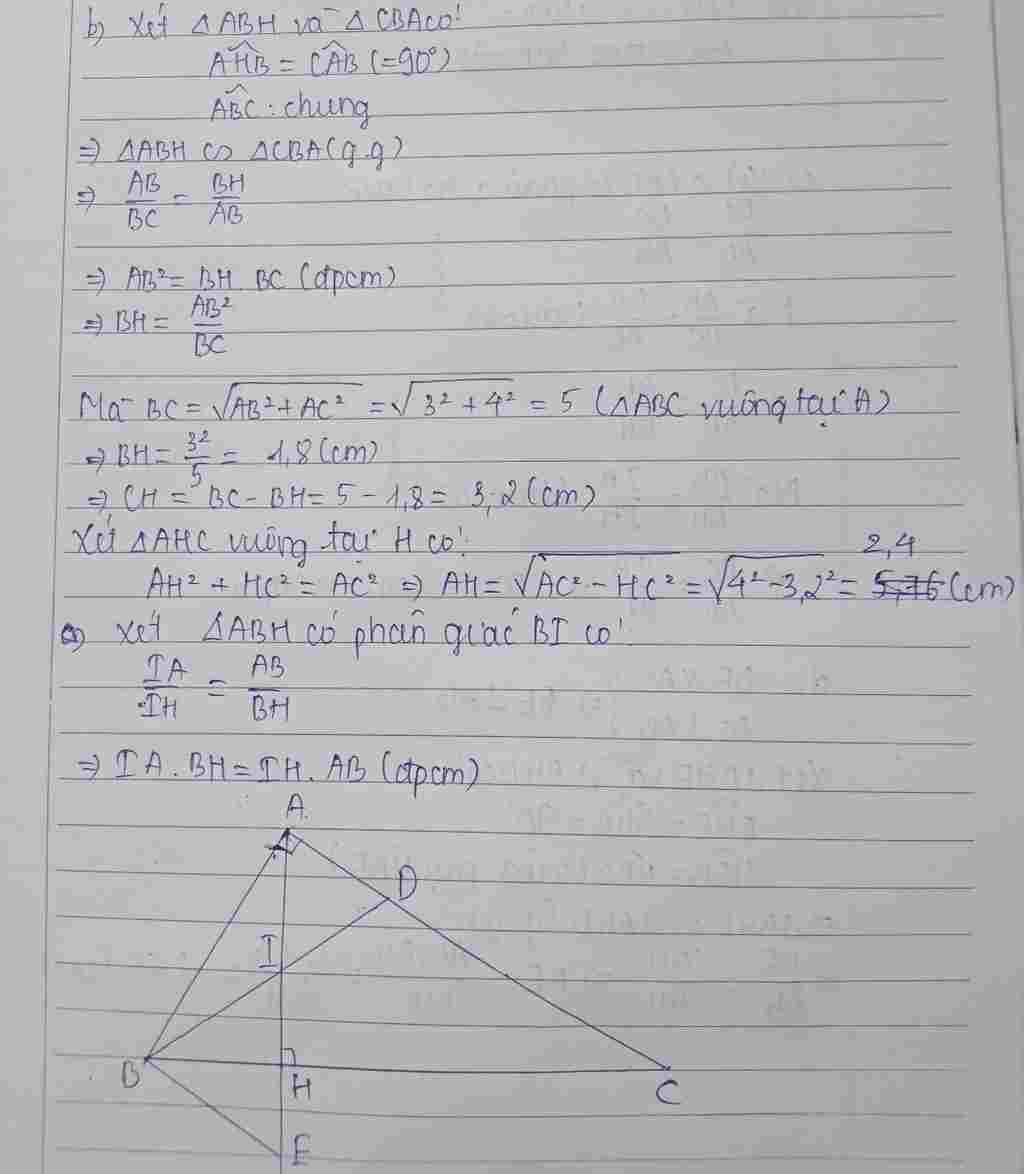 b) Xét △ABH và △CBA có:
AHB = CAB (=90°)
ABC: chung
=> △ABH ∽ △CBA (g.g)
=> AB/BC = BH/AB
=> AB² = BH. BC (đpcm)
=> BH = AB²/BC
Mà BC = √(AB²+AC²) = √(3²+4²) = 5 (△ABC vuông tại A)
=> BH = 3²/5 = 1,8 (cm)
=> CH = BC - BH = 5 - 1,8 = 3,2 (cm)
Xét △AHC vuông tại H có:
2,4
AH² + HC² = AC² => AH = √(AC² - HC²) = √(4² - 3,2²) = 5,76 (cm)
a) Xét △ABH có phân giác BI có:
IA/IH = AB/BH
=> IA.BH = IH.AB (đpcm)
A
D
I
B
H
C
E